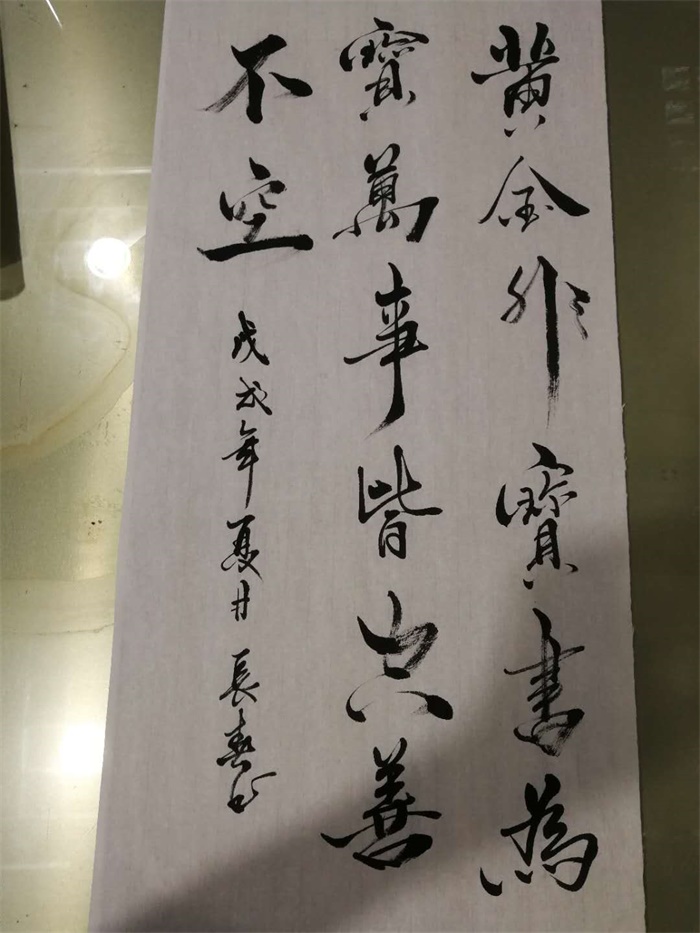 黄金非寶書為
寶萬事皆空善
不空
戊戌年夏月長春書